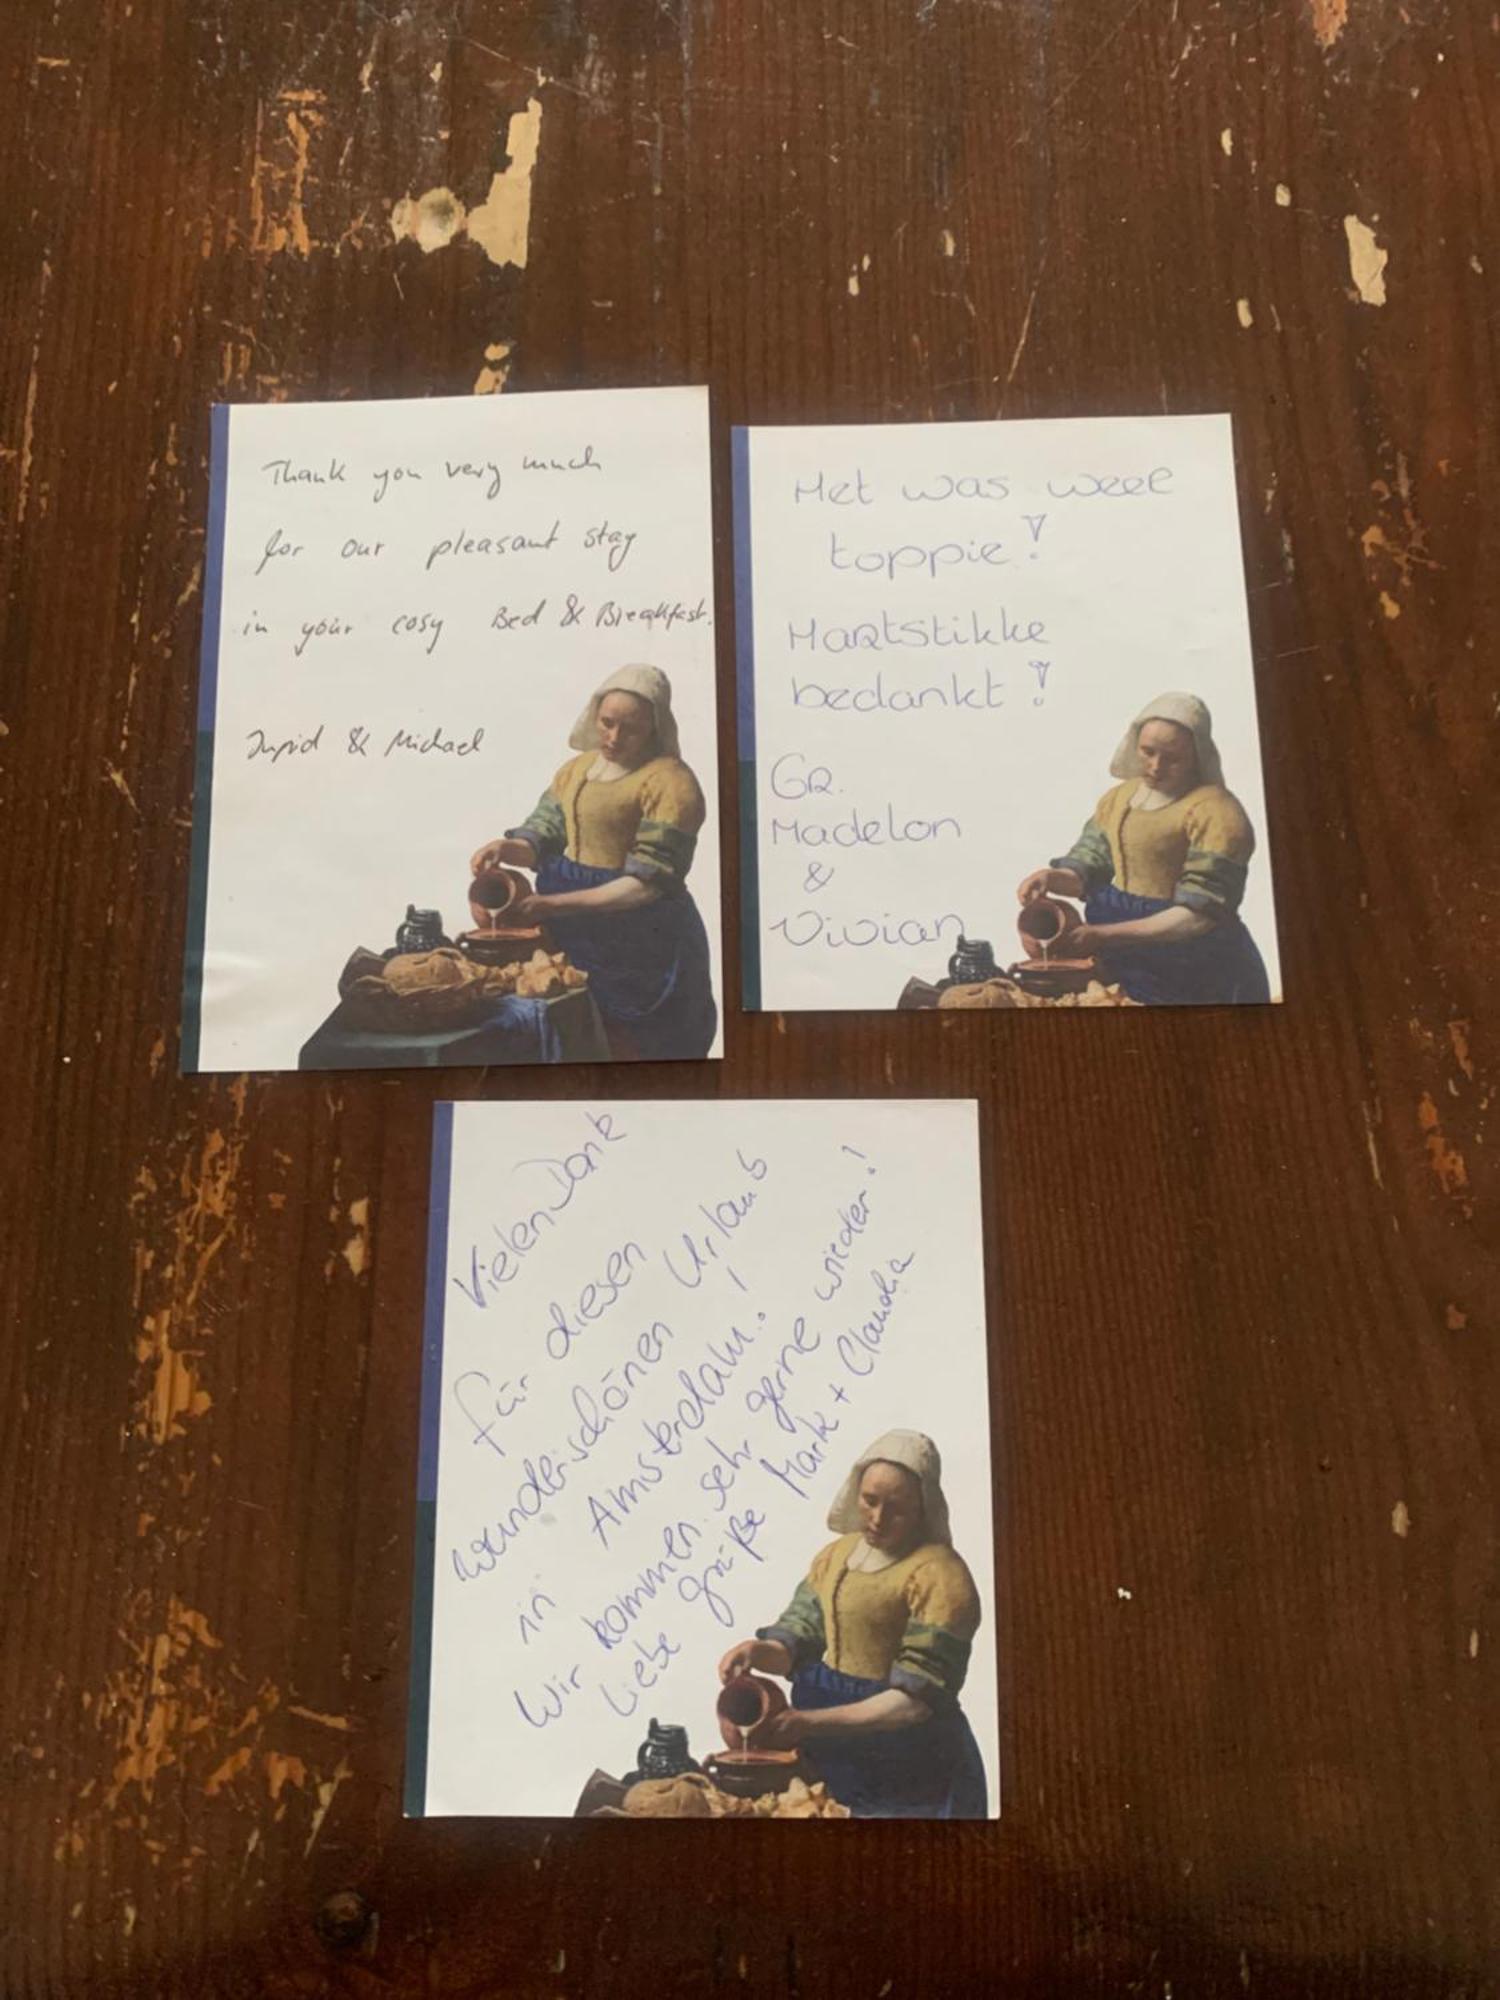 Thank you very much
for our pleasant stay
in your cosy Bed & Breakfast.
Ingrid & Michael
Het was weer
toppie!
Hartstikke
bedankt!
Gr.
Madelon
&
Vivian
Vielen Dank
für diesen
wunderschönen Urlaub
in Amsterdam!
Wir kommen sehr gerne wieder!
Liebe Grüße Mark + Claudia